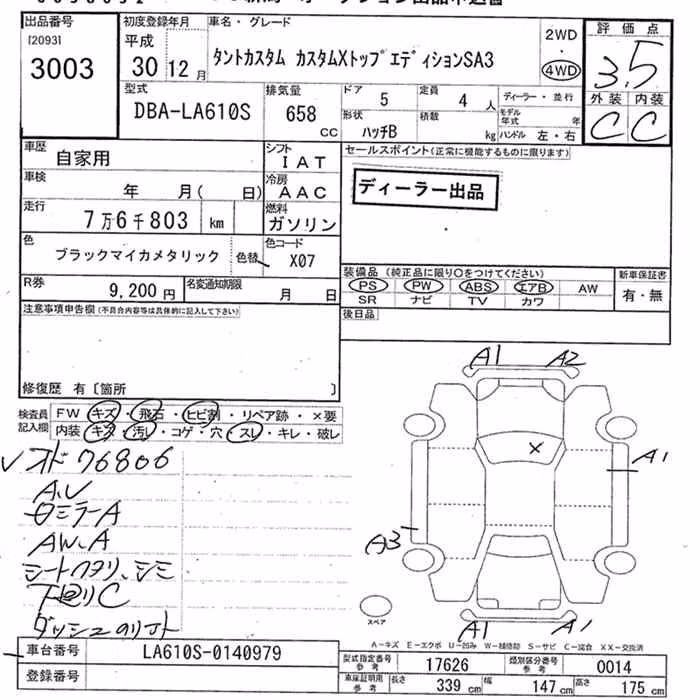 出品番号
[2093]
3003
初度登録年月
平成
30 12 月
車名・グレード
タントカスタム カスタムXトップエディションSA3
2WD
・
4WD
評価点
3.5
外装 内装
C C
型式
DBA-LA610S
排気量
658
CC
ドア
5
定員
4 人
ディーラー・並行
形状
ハッチB
積載
kg
モデル年式 年
ハンドル 左・右
車歴
自家用
シフト
IAT
セールスポイント(正常に機能するものに限ります)
ディーラー出品
車検
年 月( 日)
冷房
AAC
走行
7万6千803 km
燃料
ガソリン
色
ブラックマイカメタリック
色替
色コード
X07
R券
9,200 円
名変通知期限
月 日
装備品(純正品に限り○をつけてください)
PS PW ABS エアB AW
SR ナビ TV カワ
新車保証書
有・無
注意事項申告欄(不具合内容等は具体的に記入して下さい)
後日品
修復歴 有〔箇所 〕
検査員
記入欄
FW キズ・飛石・ヒビ割・リペア跡・×要
内装 キズ・汚レ・コゲ・穴・スレ・キレ・破レ
オド76806
AW.A
下廻りC
A1 A2
×
A1
A3
A1 A1
スペア
A-キズ E-エクボ U-凹み W-補修跡 S-サビ C-腐食 XX-交換済
車台番号
LA610S-0140979
登録番号
型式指定番号
参考
17626
類別区分番号
参考
0014
車庫証明用
参考
長さ
339 cm
幅
147 cm
高さ
175 cm